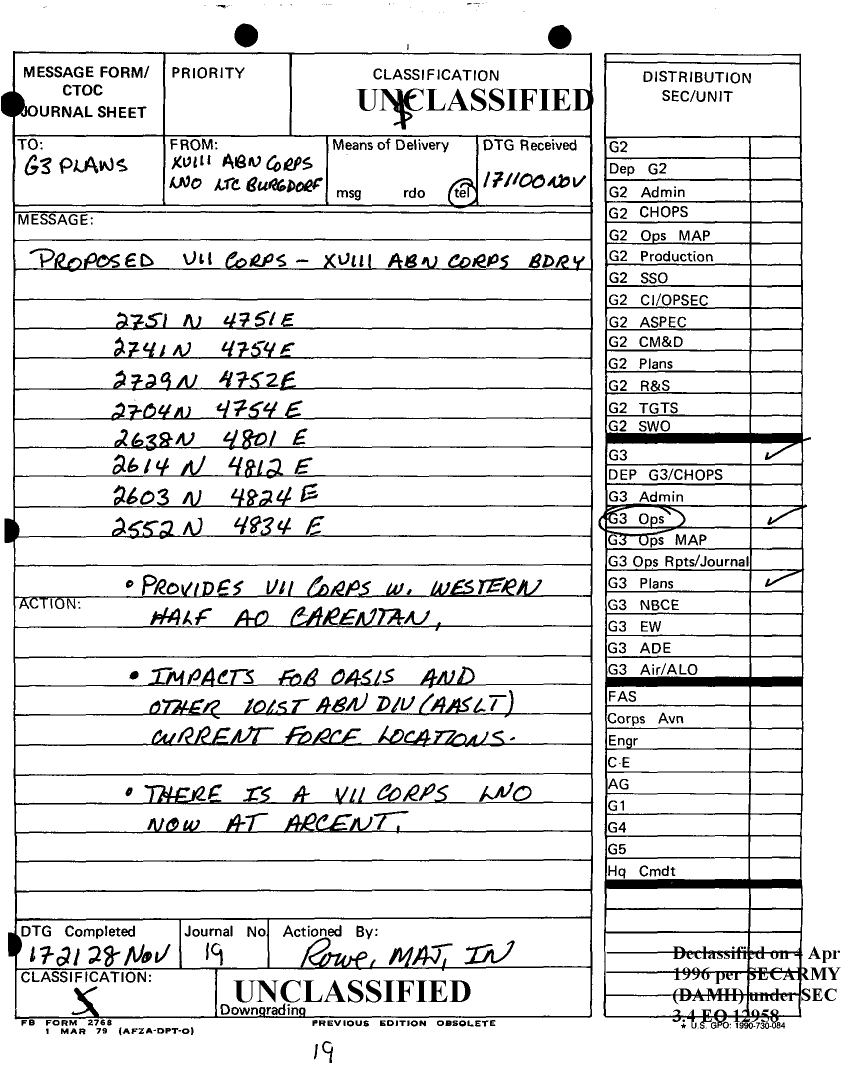 MESSAGE FORM/
CTOC
JOURNAL SHEET
PRIORITY
CLASSIFICATION
UNCLASSIFIED
TO:
G3 PLANS
FROM:
XVIII ABN CORPS
LNO LTC BURGDORF
Means of Delivery
msg rdo tel
DTG Received
171100 NOV
MESSAGE:
PROPOSED VII CORPS - XVIII ABN CORPS BDRY
2751 N 4751 E
2741 N 4754 E
2729 N 4752 E
2704 N 4754 E
2638 N 4801 E
2614 N 4812 E
2603 N 4824 E
2552 N 4834 E
• PROVIDES VII CORPS W. WESTERN
ACTION:
HALF AO CARENTAN,
• IMPACTS FOB OASIS AND
OTHER 101ST ABN DIV (AASLT)
CURRENT FORCE LOCATIONS.
• THERE IS A VII CORPS LNO
NOW AT ARCENT.
DTG Completed
172128 NOV
Journal No.
19
Actioned By:
Rowe, MAJ, IN
CLASSIFICATION:
S
UNCLASSIFIED
Downgrading
FB FORM 2768
1 MAR 79 (AFZA-DPT-O)
PREVIOUS EDITION OBSOLETE
19
DISTRIBUTION
SEC/UNIT
G2
Dep G2
G2 Admin
G2 CHOPS
G2 Ops MAP
G2 Production
G2 SSO
G2 CI/OPSEC
G2 ASPEC
G2 CM&D
G2 Plans
G2 R&S
G2 TGTS
G2 SWO
G3
DEP G3/CHOPS
G3 Admin
G3 Ops
G3 Ops MAP
G3 Ops Rpts/Journal
G3 Plans
G3 NBCE
G3 EW
G3 ADE
G3 Air/ALO
FAS
Corps Avn
Engr
C-E
AG
G1
G4
G5
Hq Cmdt
Declassified on 4 Apr
1996 per SECARMY
(DAMH) under SEC
3.4 EO 12958
* U.S. GPO: 1990-730-084